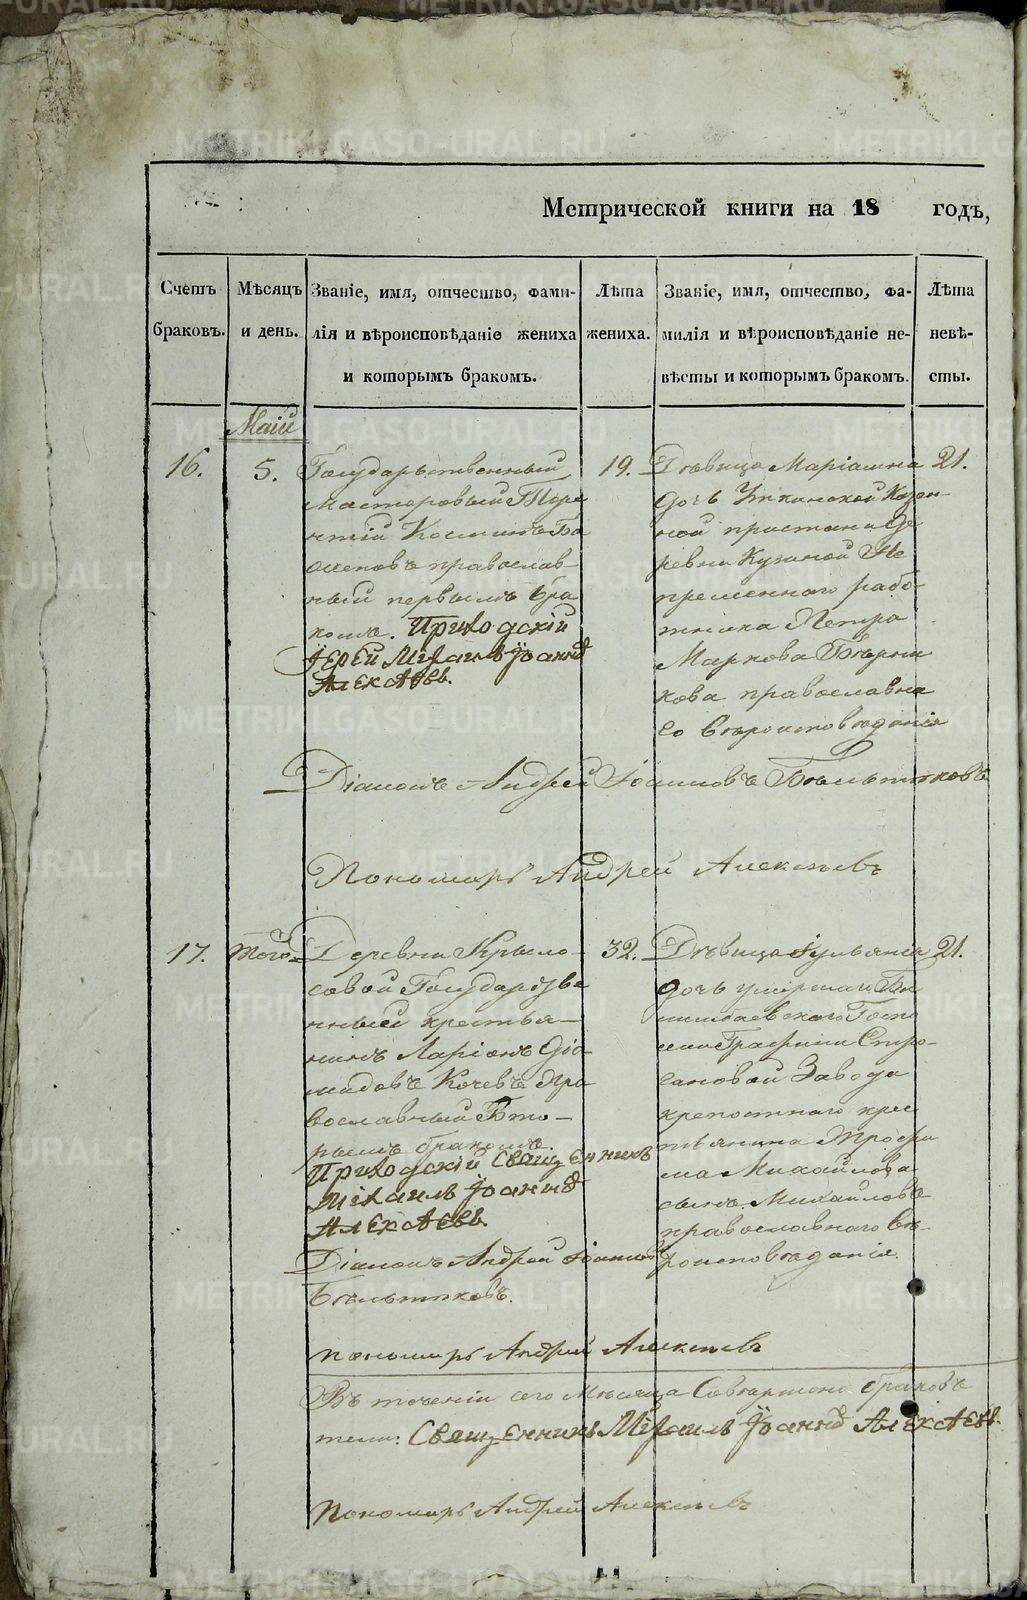 Метрической книги на 18 годъ,
Счетъ браковъ.
Мѣсяцъ и день.
Званіе, имя, отчество, фами-
лія и вѣроисповѣданіе жениха
и которымъ бракомъ.
Лѣта
жениха.
Званіе, имя, отчество, фа-
милія и вѣроисповѣданіе не-
вѣсты и которымъ бракомъ.
Лѣта
невѣ-
сты.
Маій
16.
5.
Государственный
мастеровый
Косминъ
православ-
ный первымъ бра
комъ. Приходскій
Іерей Міхаилъ Іоанновъ
Алексѣевъ.
19.
Дѣвица Маріамна
дочь Уткинской Казен-
ной пристани де
ревни Кузиной Не
премѣннаго рабо-
тника Петра
Маркова
кова православна
го вѣроисповѣданія
21.
Діаконъ Андрей Іоанновъ Бѣльтюковъ
Пономарь Андрей Алексѣевъ
17.
того
Деревни Крыло-
совой Государстве
нный крестья-
нинъ Ларіонъ Діо
мидовъ Кочевъ пра
вославный Вто-
рымъ бракомъ.
Приходскій Священникъ
Міхаилъ Іоанновъ
Алексѣевъ.
Діаконъ Андрей Іоанновъ
Бѣльтюковъ.
пономарь Андрей Алексѣевъ
32.
Дѣвица Іульянія
дочь умершаго Би
лимбаевскаго Госпо
жи Графини Стро-
гановой Завода
крепостнаго крес
тьянина Трофи
ма Михайлова
сына Михайловъ
православнаго вѣ-
роисповѣданія.
21.
Въ теченіи сего мѣсяца Совершено браковъ
Священникъ Міхаилъ Іоанновъ Алексѣевъ.
Пономарь Андрей Алексѣевъ
METRIKI.GASO-URAL.RU